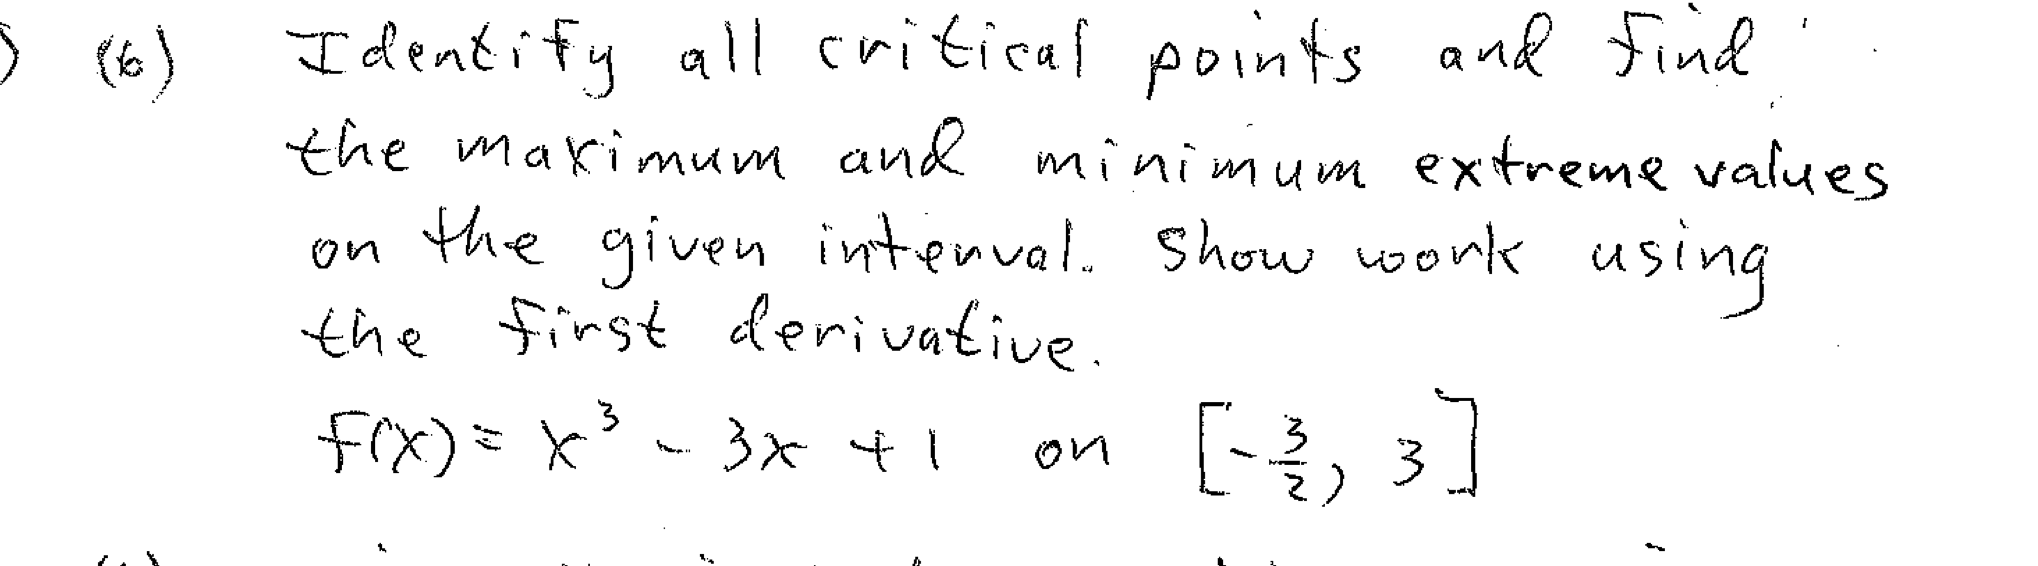 (6) Identify all critical points and find
the maximum and minimum extreme values
on the given interval. Show work using
the first derivative.
f(x) = x³ - 3x + 1 on [-3/2, 3]